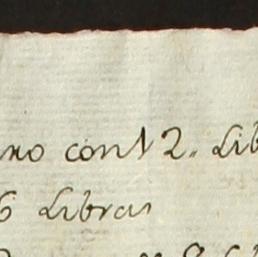 no cont 2. Lib
6 Libras